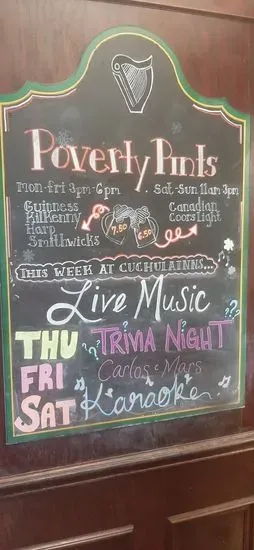 Poverty Pints
Mon-Fri 3pm-6pm . Sat-Sun 11am 3pm
Guinness
Kilkenny
Harp
Smithwicks
7.50
6.50
Canadian
Coors Light
THIS WEEK AT CUCHULAINNS...
Live Music
THU TRIVIA NIGHT ??
??
FRI Carlos & Mars
SAT Karaoke